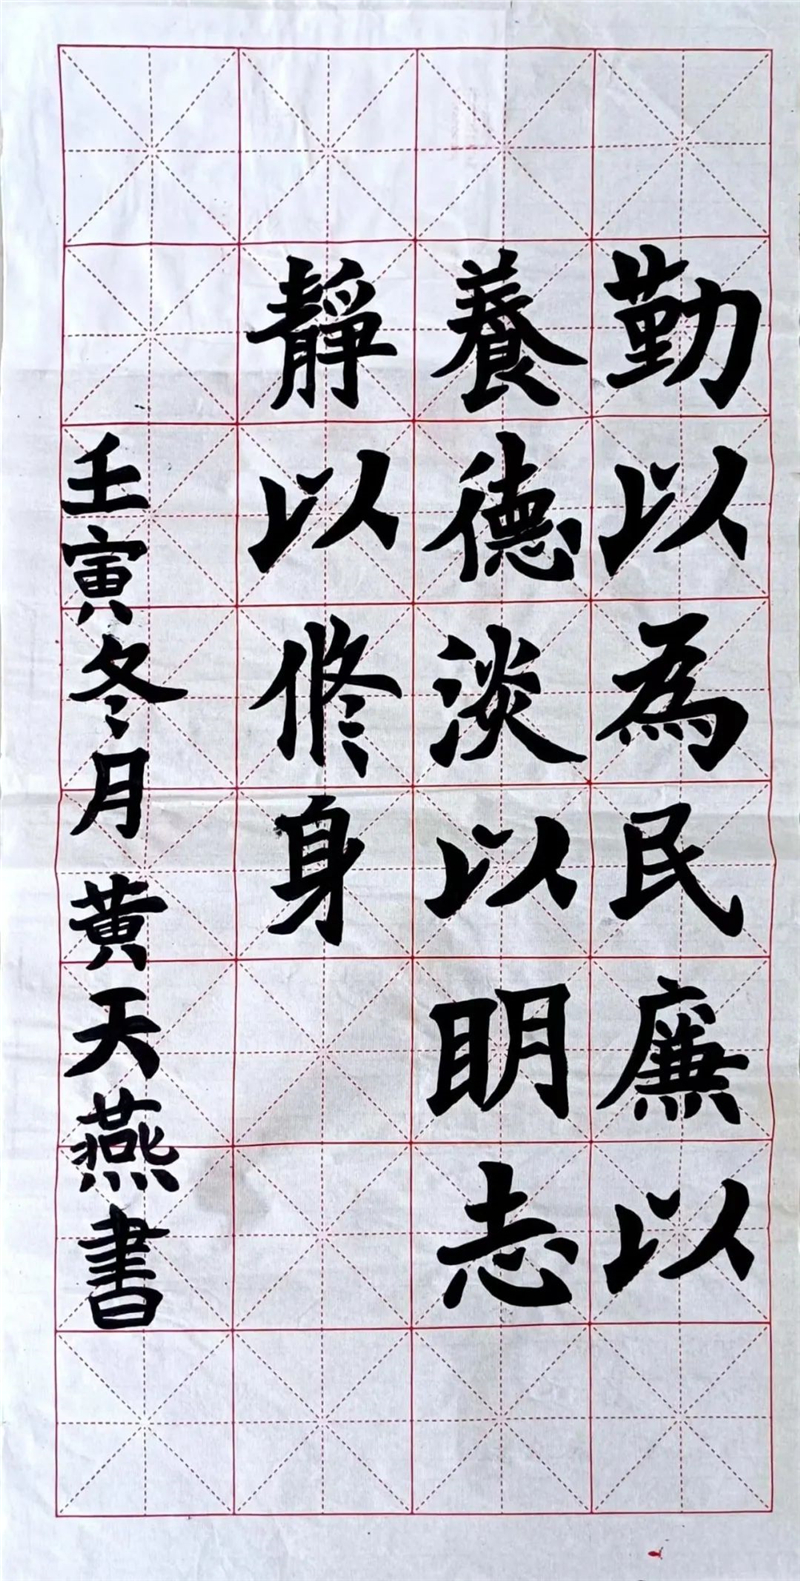 勤以為民廉以
養德淡以明志
靜以修身
壬寅冬月黄天燕書